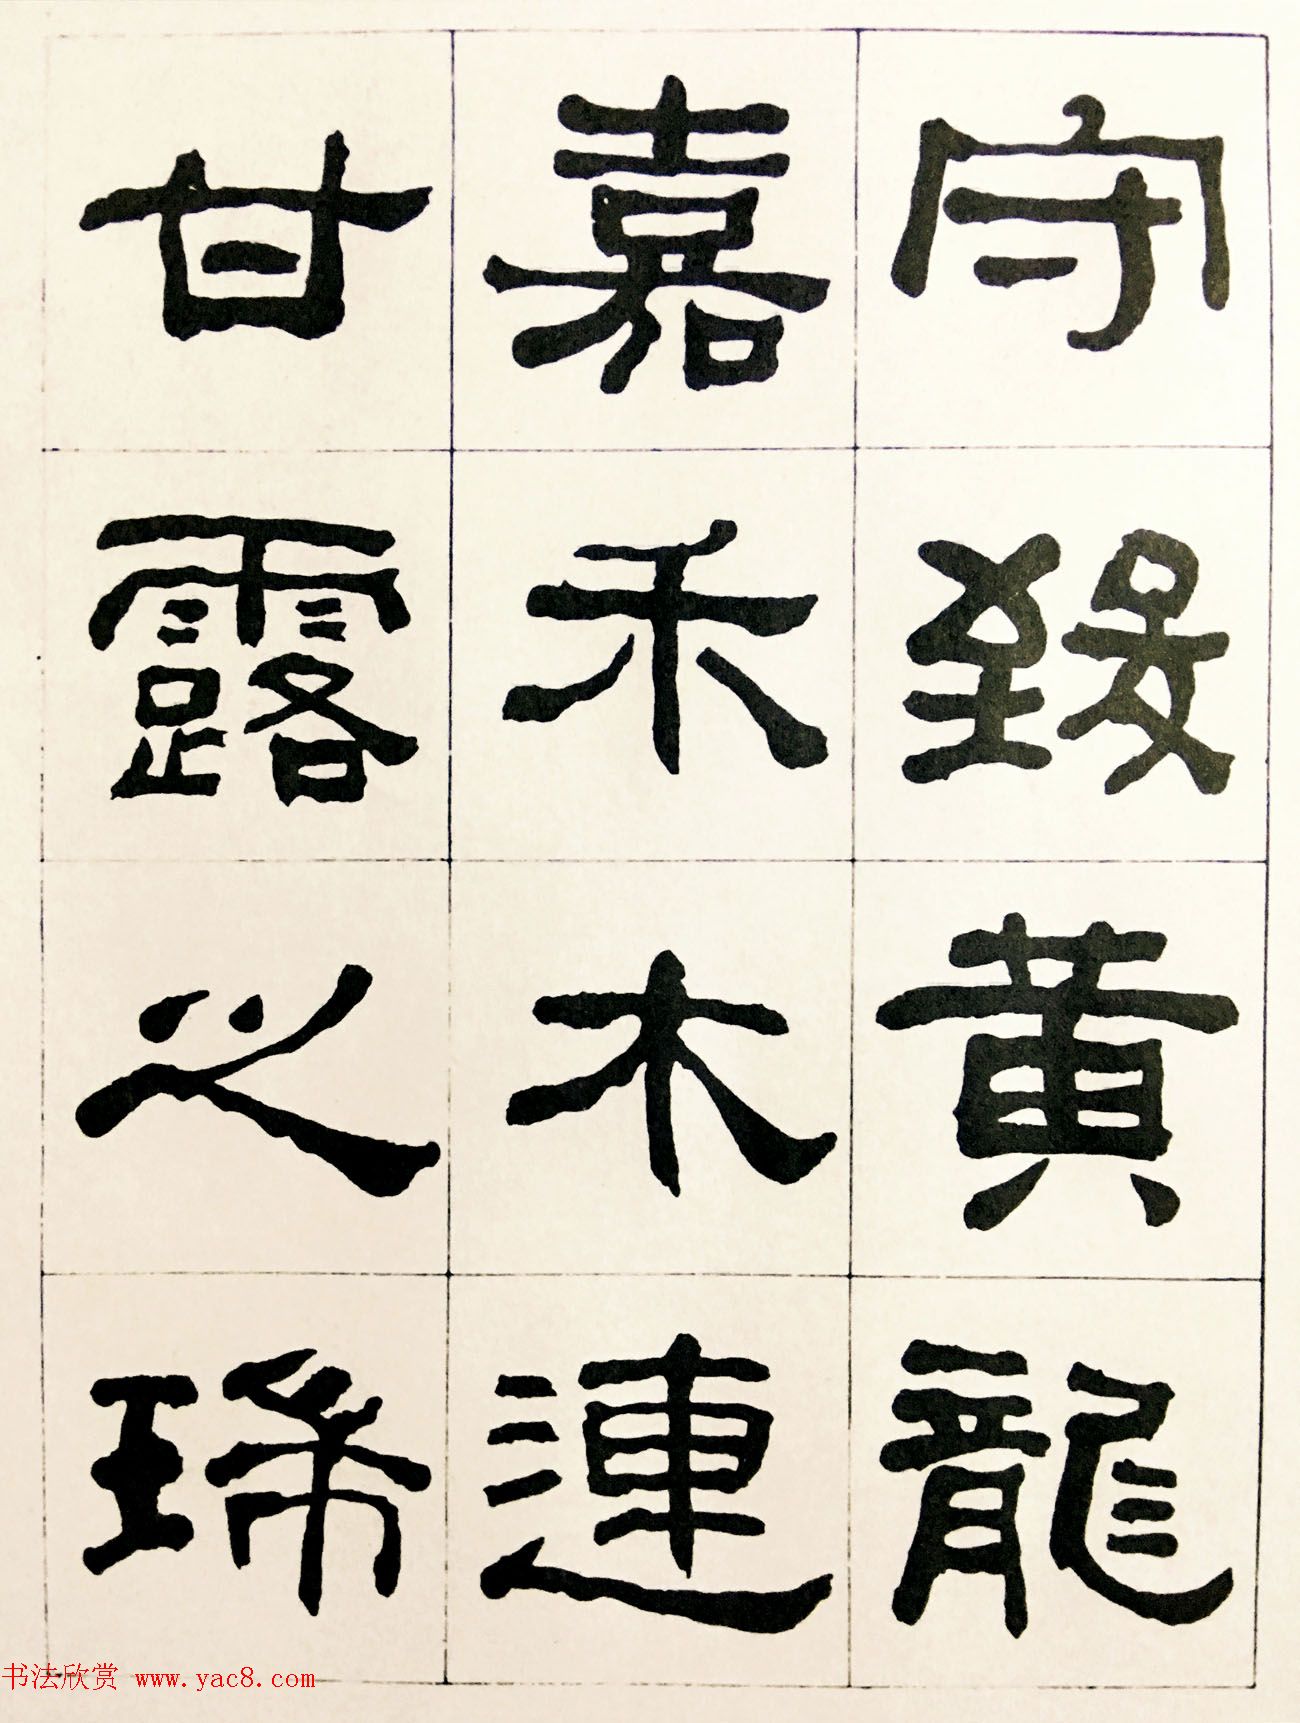 守致黄龍
嘉禾木連
甘露之珎
书法欣赏 www.yac8.com